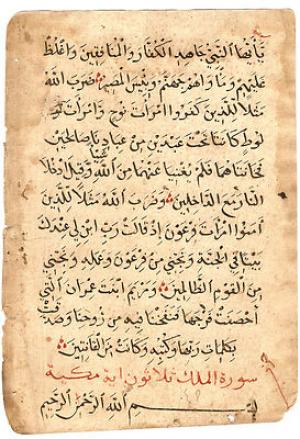 يا أيها النبي جاهد الكفار والمنافقين واغلظ
عليهم ومأواهم جهنم وبئس المصير ضرب الله
مثلا للذين كفروا امرأت نوح وامرأت
لوط كانتا تحت عبدين من عبادنا صالحين
فخانتاهما فلم يغنيا عنهما من الله شيئا وقيل ادخلا
النار مع الداخلين وضرب الله مثلا للذين
آمنوا امرأت فرعون إذ قالت رب ابن لي عندك
بيتا في الجنة ونجني من فرعون وعمله ونجني
من القوم الظالمين ومريم ابنت عمران التي
أحصنت فرجها فنفخنا فيه من روحنا وصدقت
بكلمات ربها وكتبه وكانت من القانتين
سورة الملك ثلاثون آية مكية
بسم الله الرحمن الرحيم